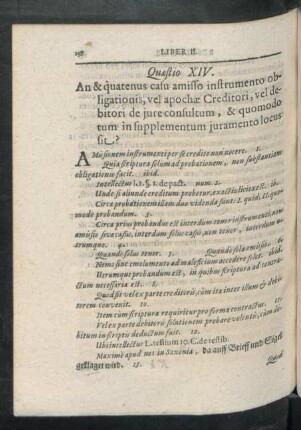 LIBER II.
Quæstio XIV.
An & quatenus casu amisso instrumento ob-
ligationis, vel apochæ Creditori, vel de-
bitori de jure consultum, & quomodo
tum in supplementum juramento locus
sit?
Amissionem instrumenti per se credito non nocere. 1.
Quia scriptura solùm ad probationem, non substantiam
obligationis facit. ibid.
Intellectus l. 1. §. 1. de pact. num. 2.
Unde si aliunde creditum probetur, exactio licita est. ib.
Circa probationem illam duo videnda sunt: 1. quid, II. quo-
modo probandum. 3.
Circa prius probandus est interdum tenor instrumenti, non
amissio seu casus, interdum solus casus, non tenor, interdum u-
trumque. 4.
Quando solus tenor. 5. Quando sola amissio. 6.
Nemo sine emolumento ad maleficium accedere solet.
Utrumque probandum est, in quibus scriptura ad contra-
ctum necessaria est.
Quod sit vel ex parte creditoris, cùm ita inter illum & debi-
torem convenit. 10.
Item cùm scriptura requiritur pro forma contractus.
Vel ex parte debitoris solutionem probare volentis, cùm de-
bitum in scriptis deductum fuit.
Ubi intellectus L. testium 19. C. de testib.
Maximè apud nos in Saxonia, da auff Brieff und Sigel
geklaget wird. 15.